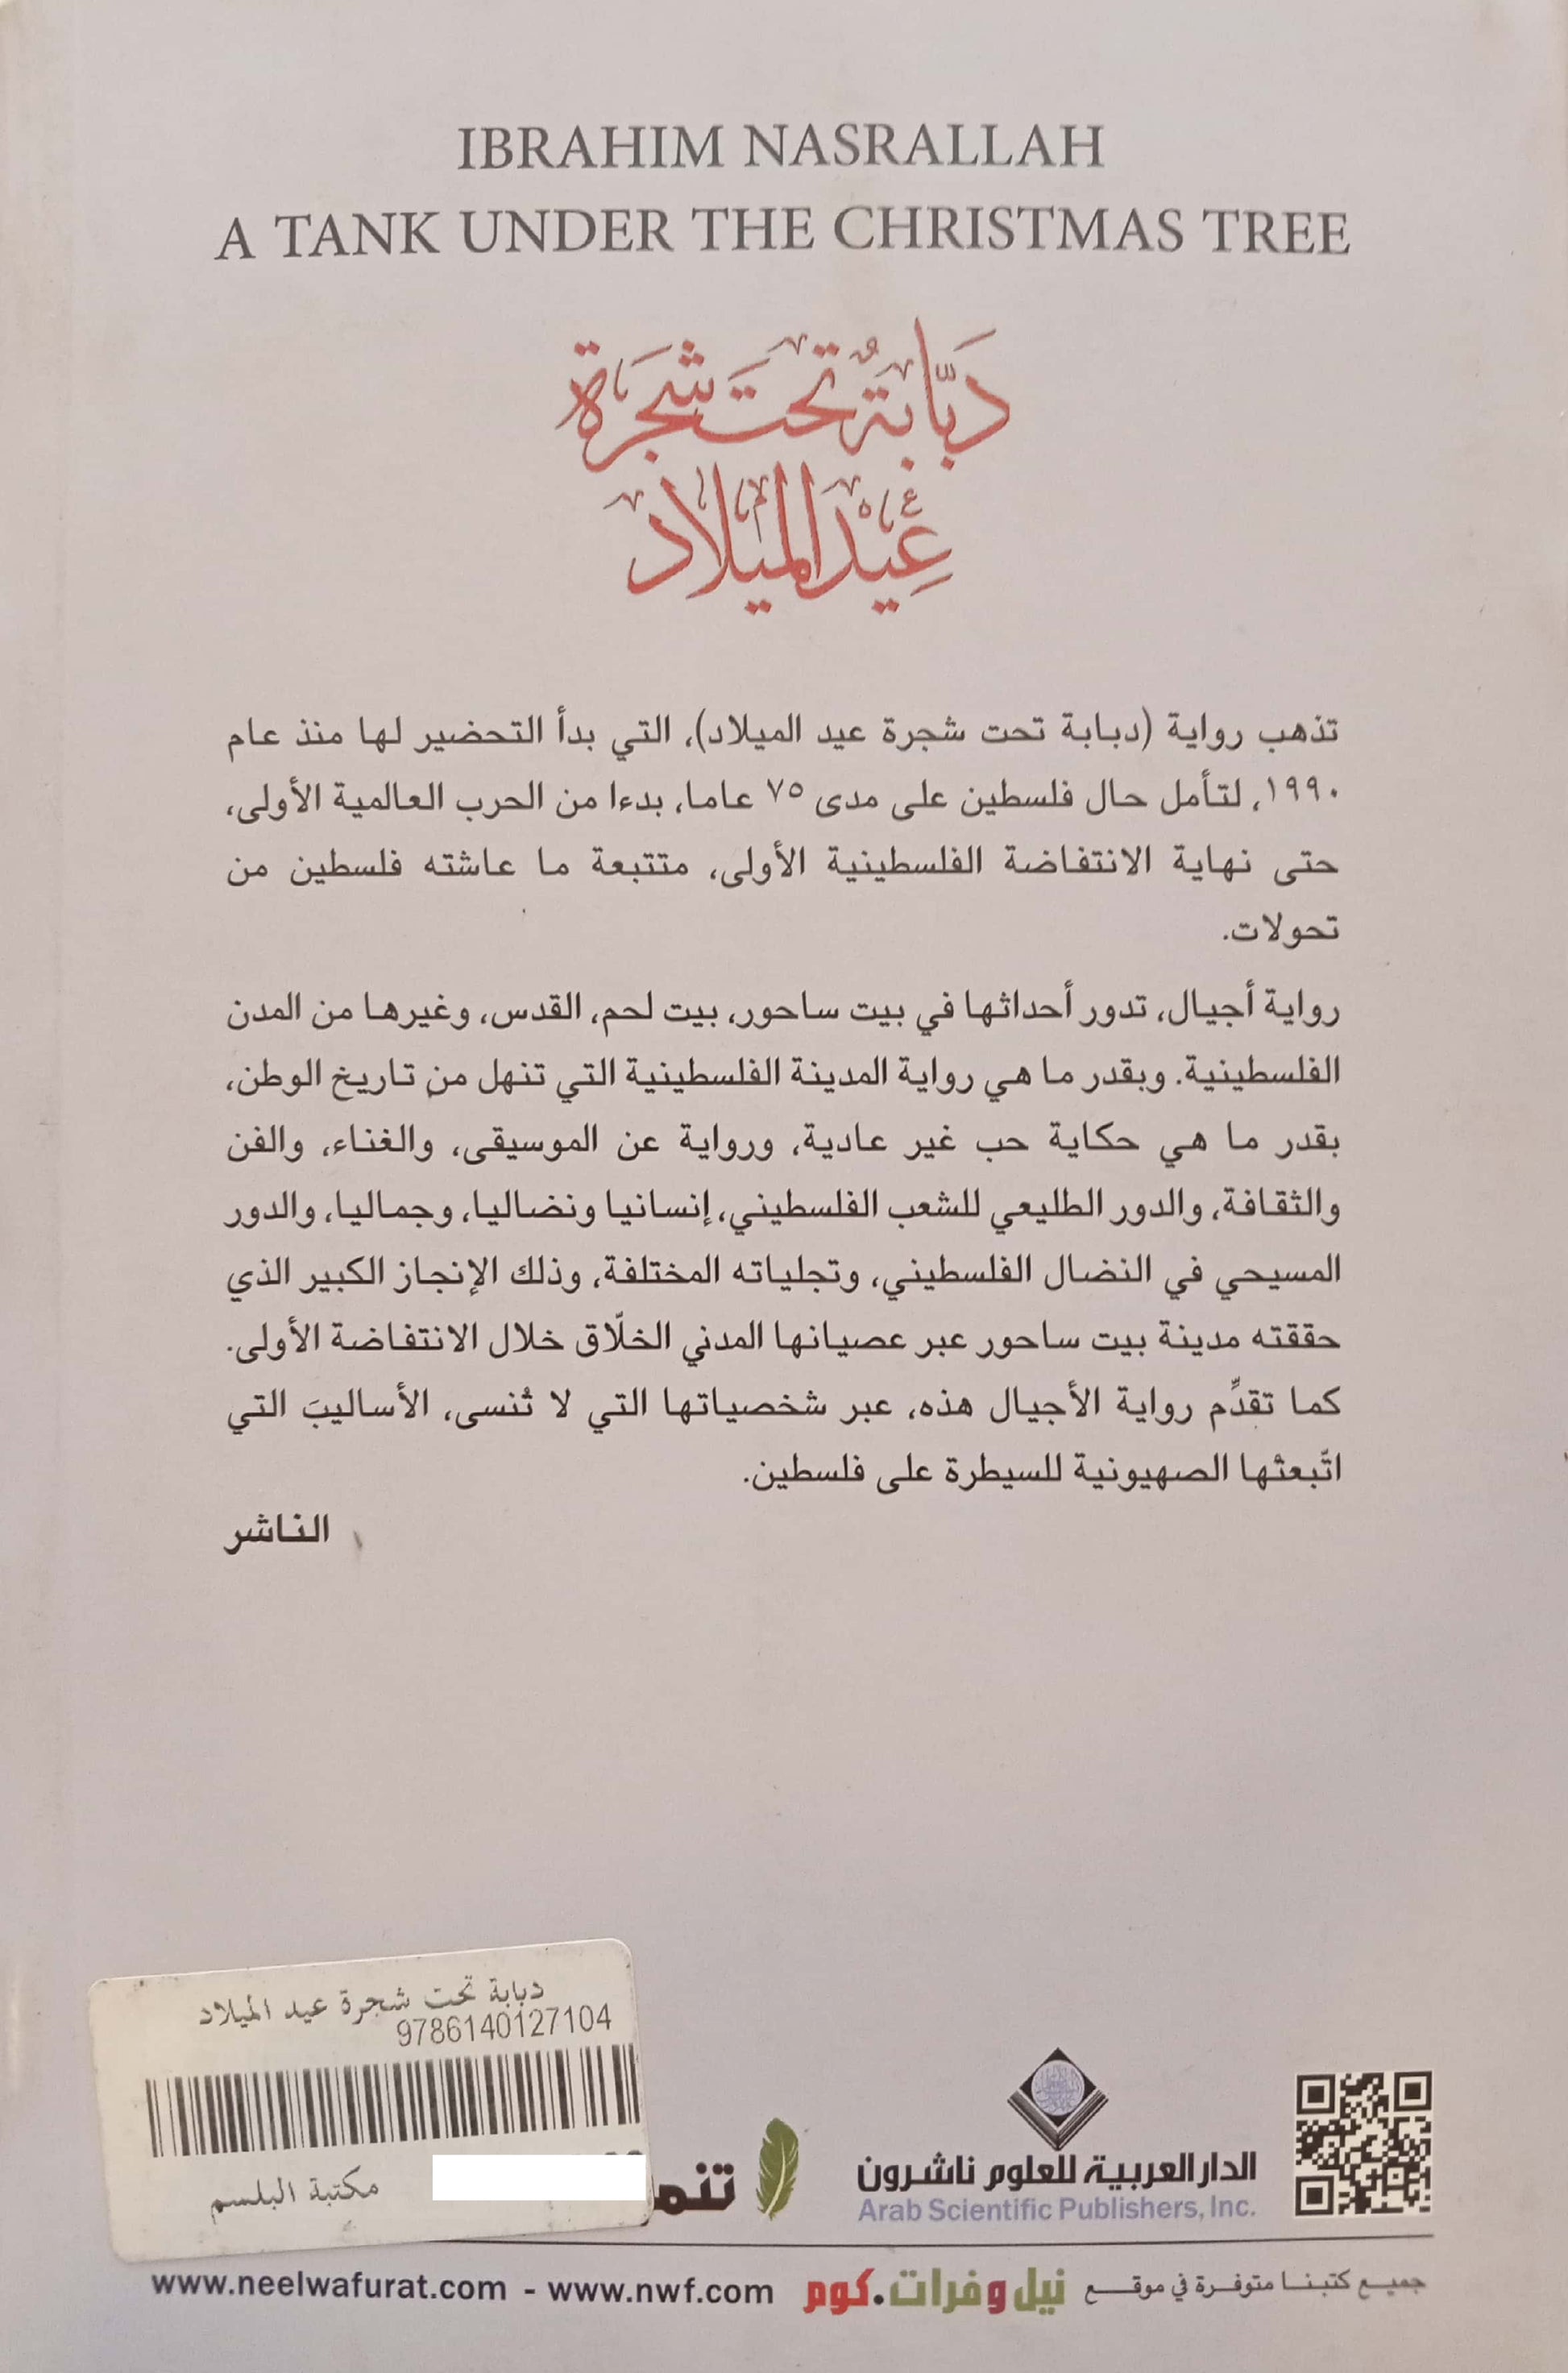 IBRAHIM NASRALLAH
A TANK UNDER THE CHRISTMAS TREE
دَبَّابَةٌ تَحتَ شَجَرَة
عِيْدِ المِيْلَاد
تذهب رواية (دبابة تحت شجرة عيد الميلاد)، التي بدأ التحضير لها منذ عام
١٩٩٠، لتأمل حال فلسطين على مدى ٧٥ عاما، بدءا من الحرب العالمية الأولى،
حتى نهاية الانتفاضة الفلسطينية الأولى، متتبعة ما عاشته فلسطين من
تحولات.
رواية أجيال، تدور أحداثها في بيت ساحور، بيت لحم، القدس، وغيرها من المدن
الفلسطينية. وبقدر ما هي رواية المدينة الفلسطينية التي تنهل من تاريخ الوطن،
بقدر ما هي حكاية حب غير عادية، ورواية عن الموسيقى، والغناء، والفن
والثقافة، والدور الطليعي للشعب الفلسطيني، إنسانيا ونضاليا، وجماليا، والدور
المسيحي في النضال الفلسطيني، وتجلياته المختلفة، وذلك الإنجاز الكبير الذي
حققته مدينة بيت ساحور عبر عصيانها المدني الخلّاق خلال الانتفاضة الأولى.
كما تقدِّم رواية الأجيال هذه، عبر شخصياتها التي لا تُنسى، الأساليبَ التي
اتّبعتْها الصهيونية للسيطرة على فلسطين.
الناشر
دبابة تحت شجرة عيد الميلاد
9786140127104
مكتبة البلسم
الدار العربية للعلوم ناشرون
Arab Scientific Publishers, Inc.
جميع كتبنا متوفرة في موقع نيل وفرات.كوم www.neelwafurat.com - www.nwf.com